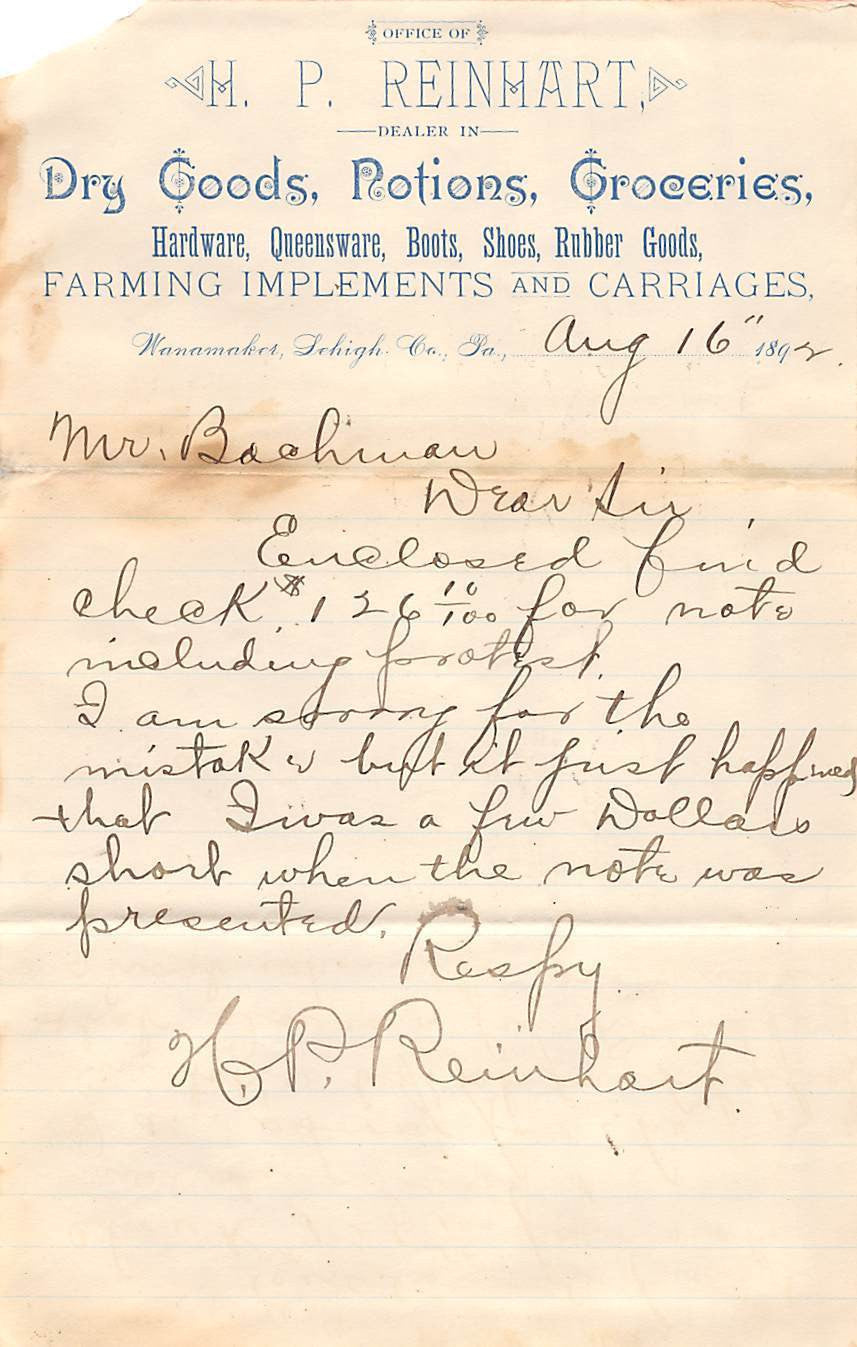 OFFICE OF
H. P. REINHART,
DEALER IN
Dry Goods, Notions, Groceries,
Hardware, Queensware, Boots, Shoes, Rubber Goods,
FARMING IMPLEMENTS AND CARRIAGES,
Wanamaker, Lehigh Co., Pa., Aug 16" 1892.
Mr. Bachman
Dear Sir,
Enclosed find
check $126 10/100 for note
including protest.
I am sorry for the
mistake but it just happined
that I was a few Dollars
short when the note was
presented.
Respy
H. P. Reinhart.